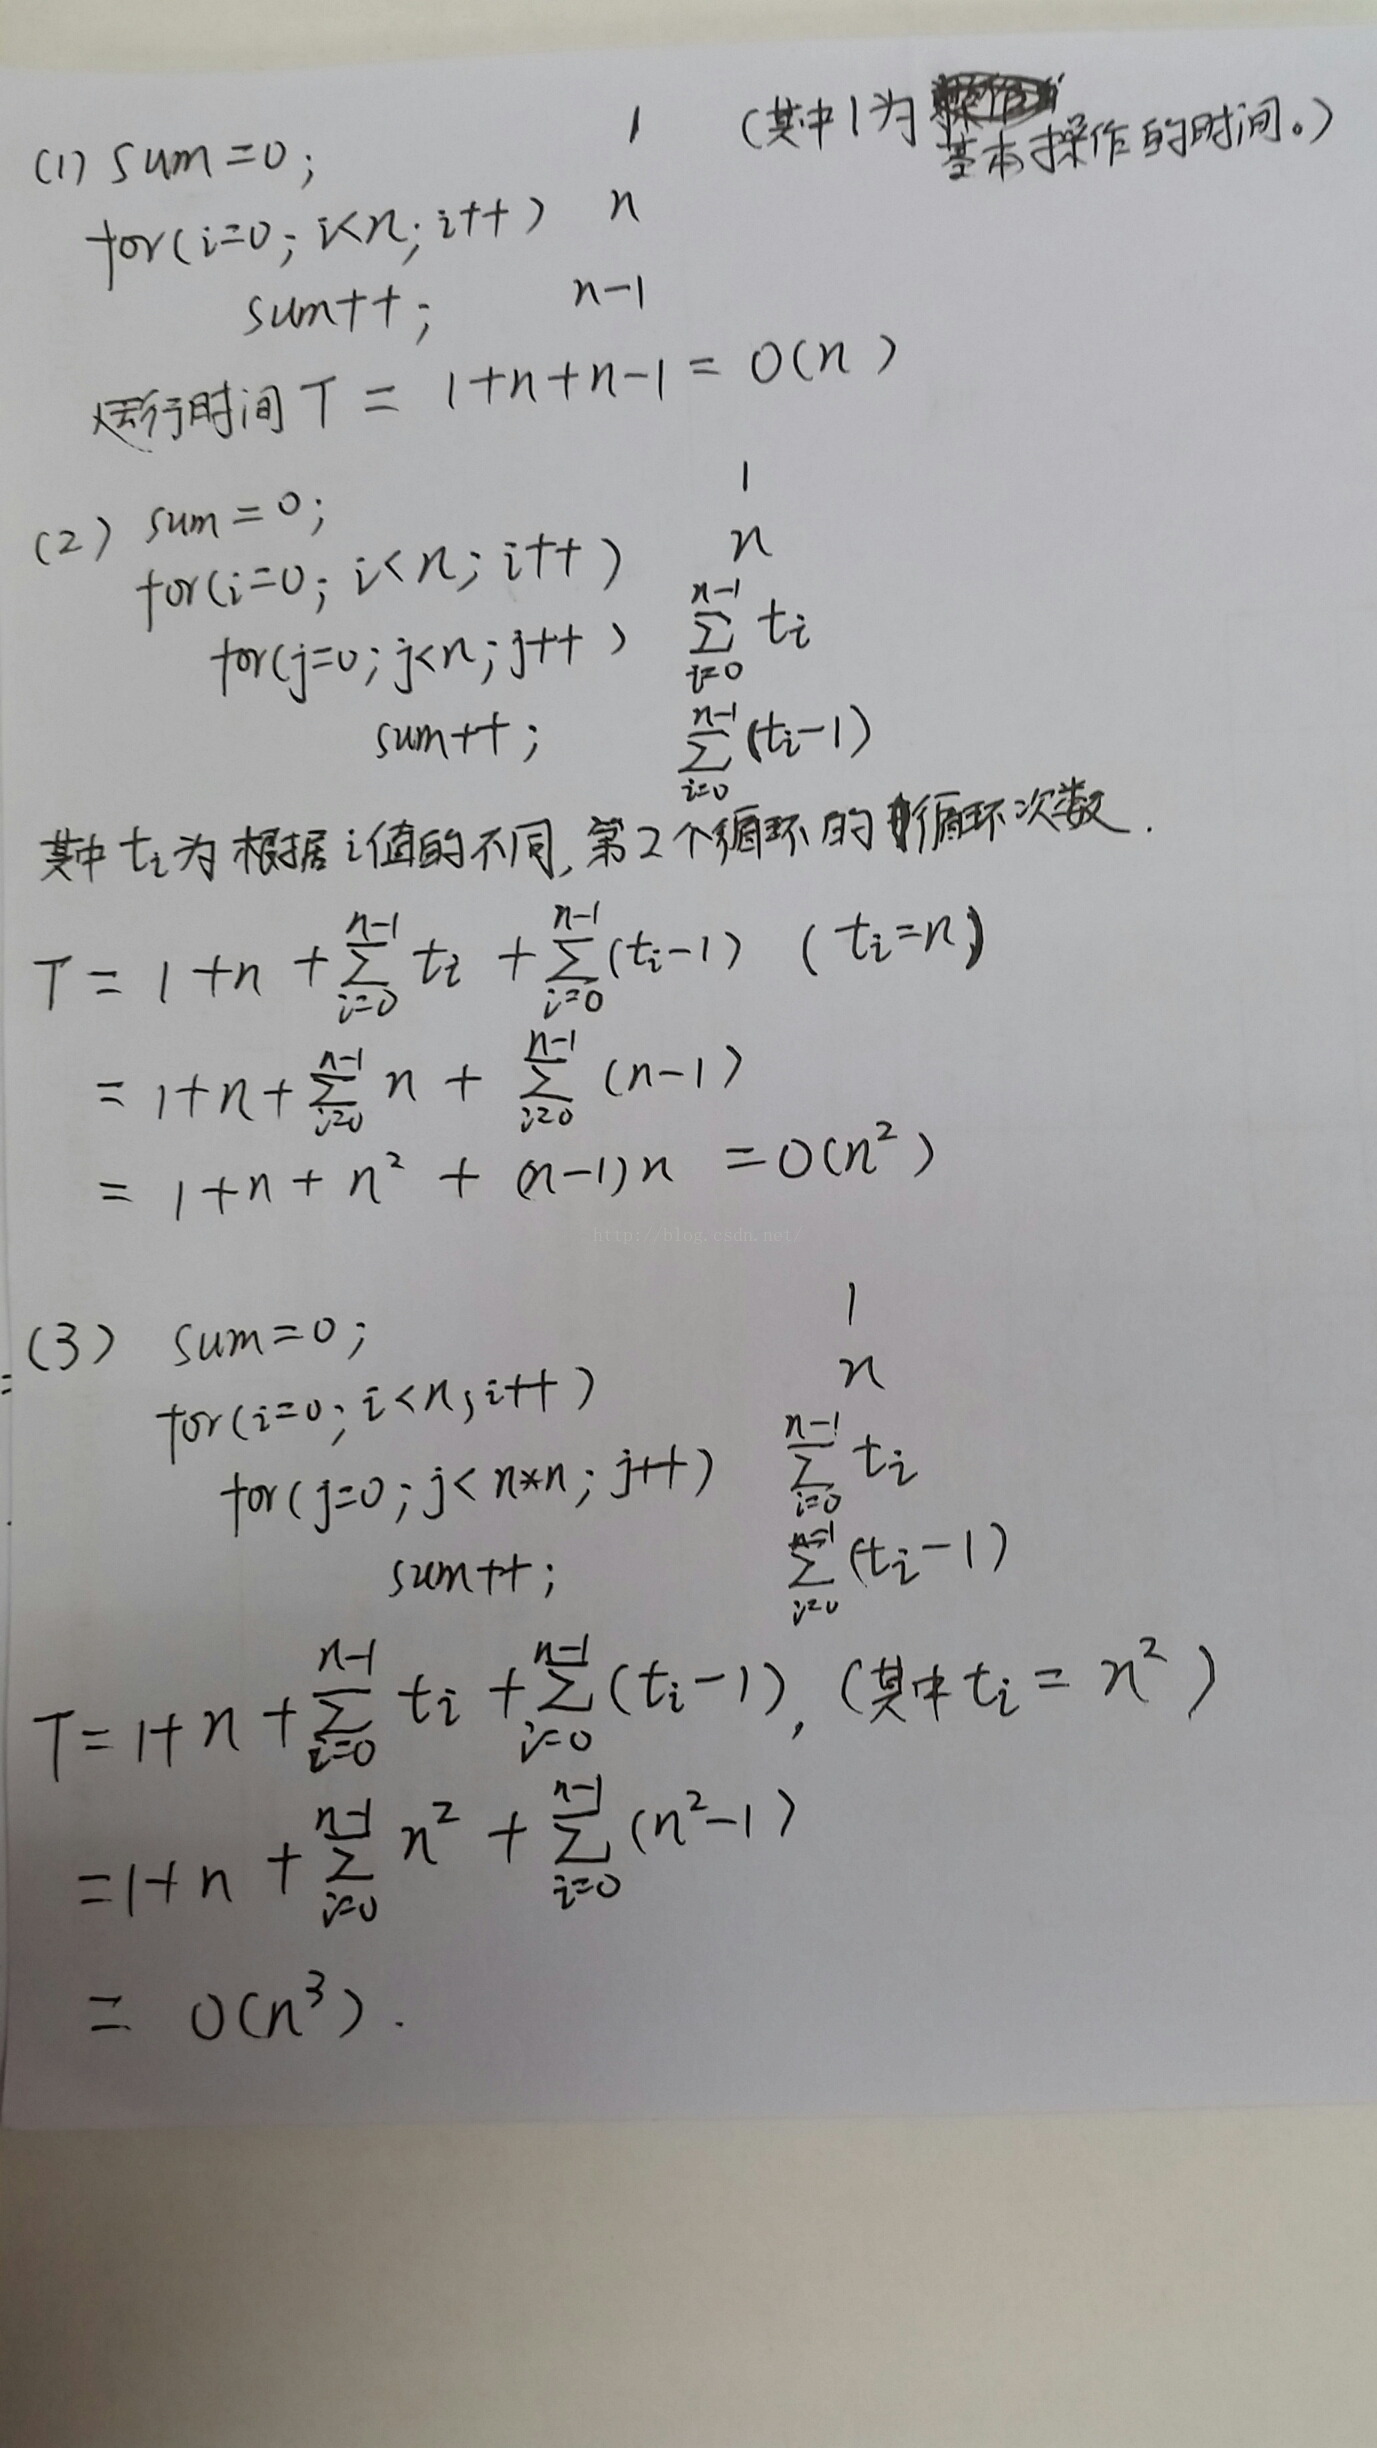 (1) sum=0; 1 (其中1为基本操作的时间。)
for(i=0; i<n; i++) n
sum++; n-1
运行时间 T = 1+n+n-1 = O(n)
(2) sum=0; 1
for(i=0; i<n; i++) n
for(j=0; j<n; j++) ∑_{i=0}^{n-1} t_i
sum++; ∑_{i=0}^{n-1} (t_i-1)
其中 t_i 为根据 i 值的不同, 第2个循环的循环次数.
T = 1+n + ∑_{i=0}^{n-1} t_i + ∑_{i=0}^{n-1} (t_i-1) (t_i=n)
= 1+n+ ∑_{i=0}^{n-1} n + ∑_{i=0}^{n-1} (n-1)
= 1+n+n² + (n-1)n = O(n²)
http://blog.csdn.net/
(3) sum=0; 1
for(i=0; i<n; i++) n
for(j=0; j<n*n; j++) ∑_{i=0}^{n-1} t_i
sum++; ∑_{i=0}^{n-1} (t_i-1)
T=1+n+ ∑_{i=0}^{n-1} t_i + ∑_{i=0}^{n-1} (t_i-1), (其中 t_i = n²)
=1+n + ∑_{i=0}^{n-1} n² + ∑_{i=0}^{n-1} (n²-1)
= O(n³).